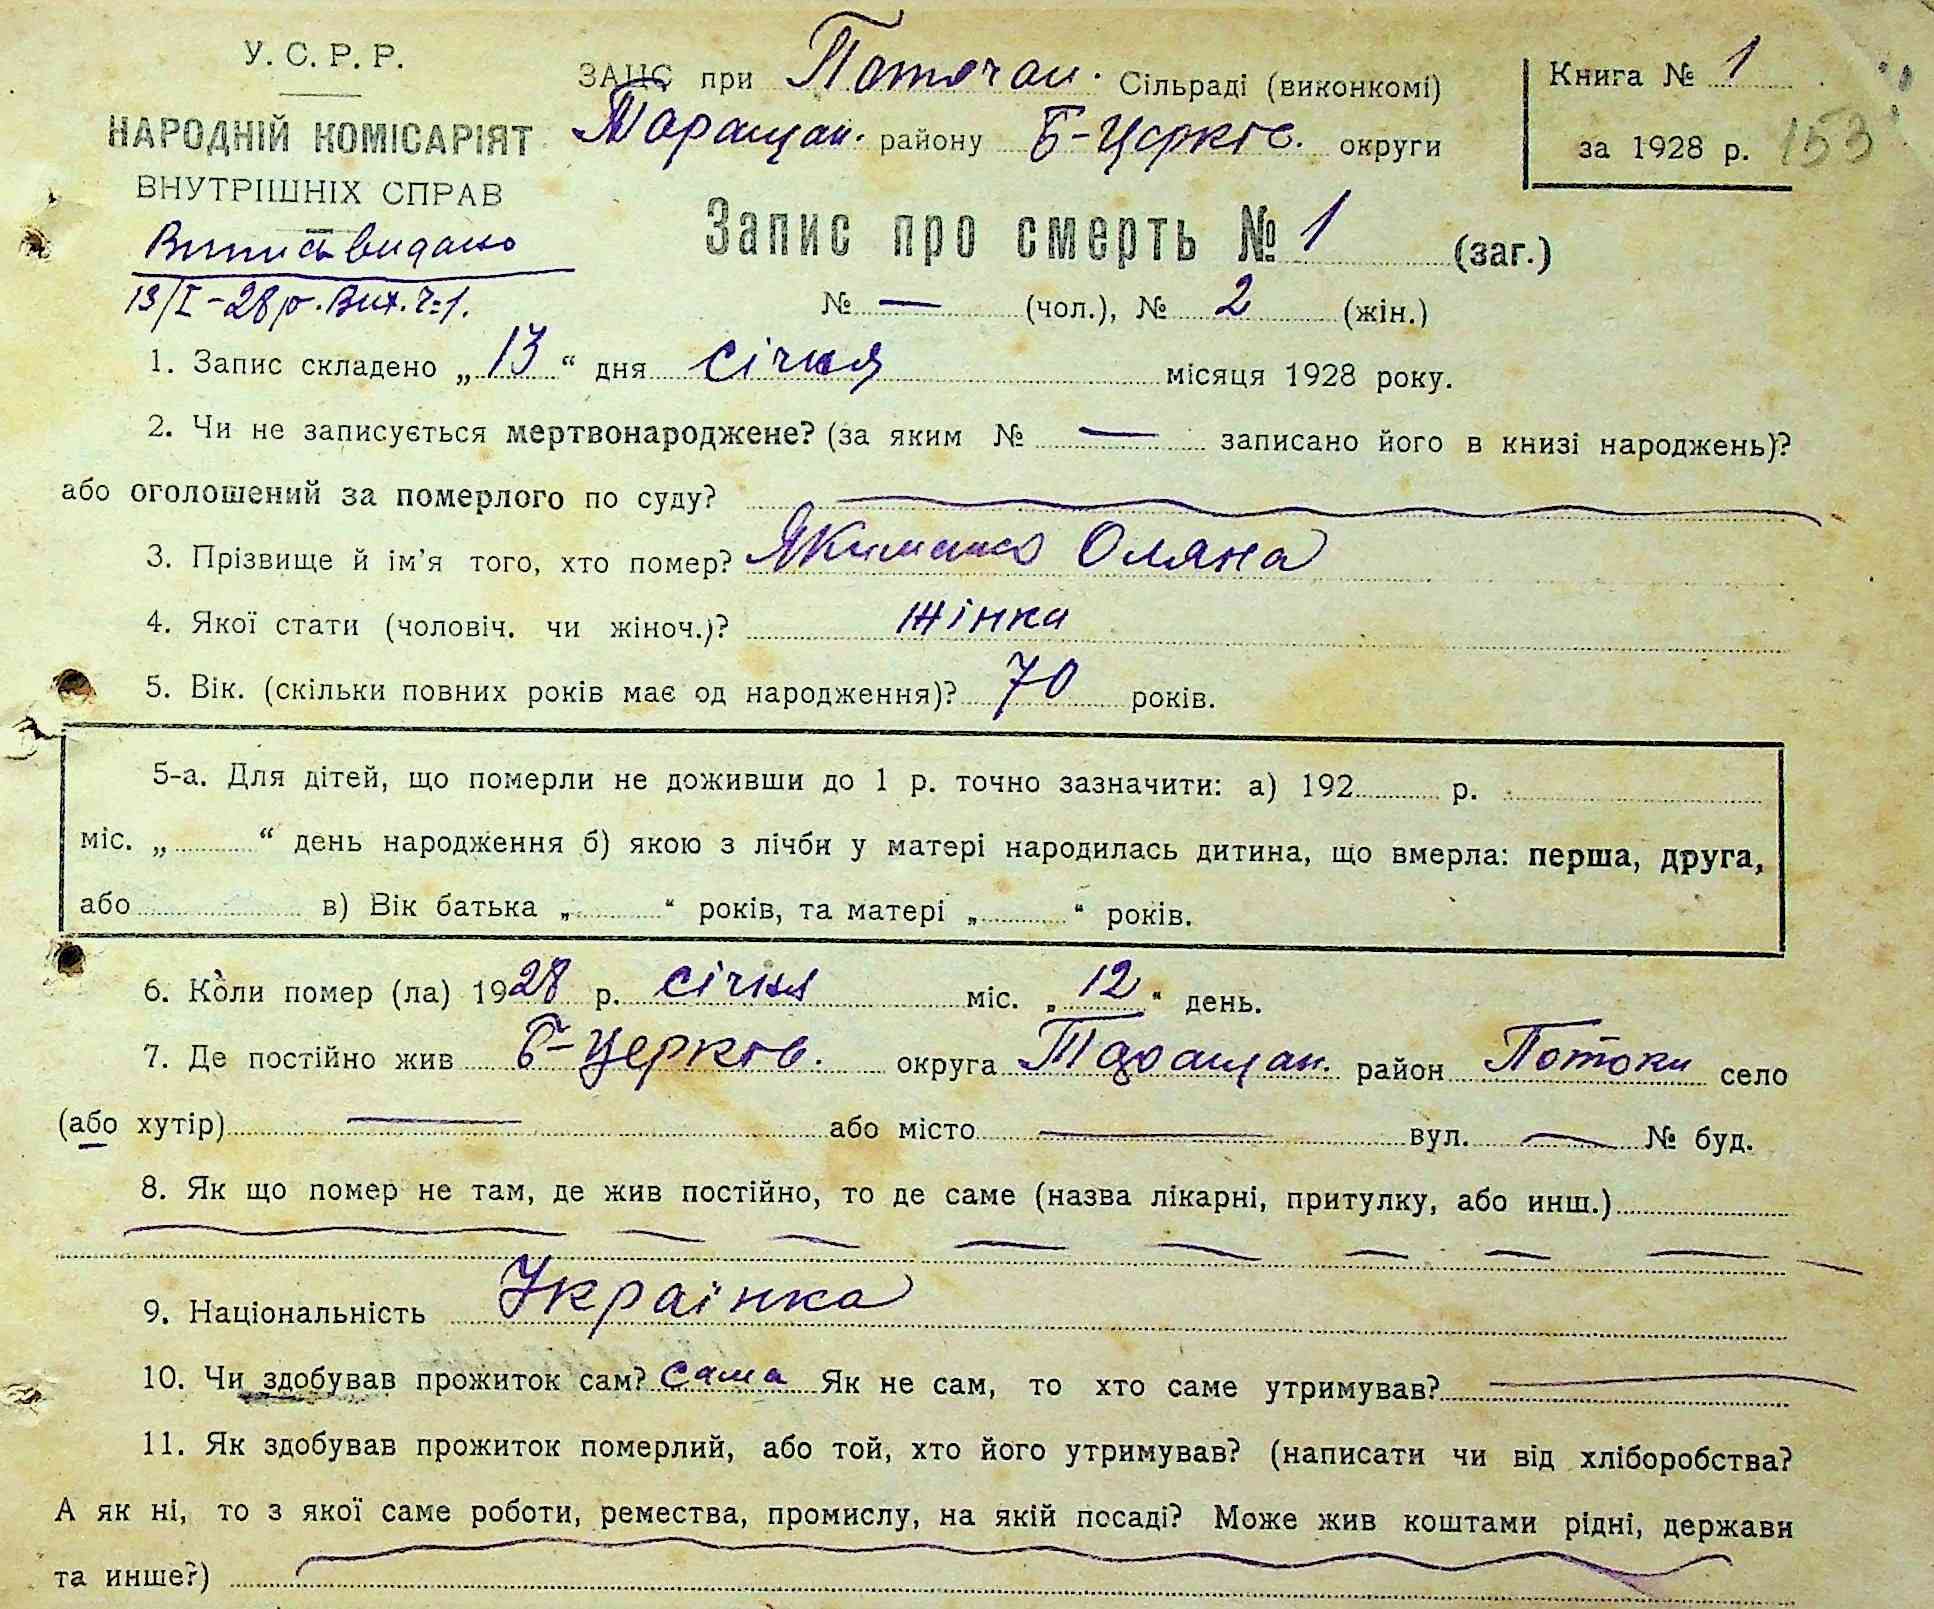 У. С. Р. Р.
НАРОДНІЙ КОМІСАРІЯТ
ВНУТРІШНІХ СПРАВ
Випись видано
13/I-28 р. Вих. ч. 1.
ЗАЦС при Поточан. Сільраді (виконкомі)
Таращан. району Б-Церків. округи
Книга № 1
за 1928 р. 153
Запис про смерть № 1 (заг.)
№ — (чол.), № 2 (жін.)
1. Запис складено „13“ дня січня місяця 1928 року.
2. Чи не записується мертвонароджене? (за яким № — записано його в книзі народжень)?
або оголошений за померлого по суду?
3. Прізвище й ім'я того, хто помер? Оляна
4. Якої стати (чоловіч. чи жіноч.)? Жінка
5. Вік. (скільки повних років має од народження)? 70 років.
5-а. Для дітей, що померли не доживши до 1 р. точно зазначити: а) 192 р.
міс. „ “ день народження б) якою з лічби у матері народилась дитина, що вмерла: перша, друга,
або в) Вік батька „ “ років, та матері „ “ років.
6. Коли помер (ла) 1928 р. січня міс. „12“ день.
7. Де постійно жив Б-Церків. округа Таращан. район Потоки село
(або хутір) — або місто — вул. — № буд.
8. Як що помер не там, де жив постійно, то де саме (назва лікарні, притулку, або инш.)
9. Національність Українка
10. Чи здобував прожиток сам? Сама Як не сам, то хто саме утримував? —
11. Як здобував прожиток померлий, або той, хто його утримував? (написати чи від хліборобства?
А як ні, то з якої саме роботи, ремества, промислу, на якій посаді? Може жив коштами рідні, держави
та инше?)